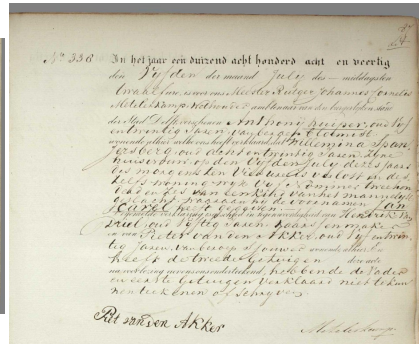 No 336 In het jaar een duizend acht honderd acht en veertig
den Vijfden der maand July des middags ten
twaalf ure, is voor ons Meester Rutger Johannes Cornelis
Metelerkamp Wethouder ambtenaar van den burgerlijken stand
der Stad Delft verschenen Anthony Kuiper, oud vijf
en twintig Jaren, van beroep
wonende alhier welke ons heeft verklaard dat Willemina Span
oud en twintig Jaren, zijne
huisvrouw op den Vijfden July dezes jaars
des morgens ten Vier ure is verlost in des
zelfs woning wijk Vijf Nommer twee hon
derd van een kind van het mannelijk
geslacht, waaraan zij de voornamen
heeft gegeven
verklaring geschied in tegenwoordigheid van Hendrik
oud Vijftig Jaren,
en van Pieter van den Akker, oud vijf en twin
tig Jaren, van beroep Sjouwer wonende alhier
heeft de tweede Getuigen deze acte
na voorlezing nevens ons onderteekend, hebbende de Vader
en eerste Getuigen verklaard niet te kun
nen teekenen of schryven
Piet van den Akker
Metelerkamp